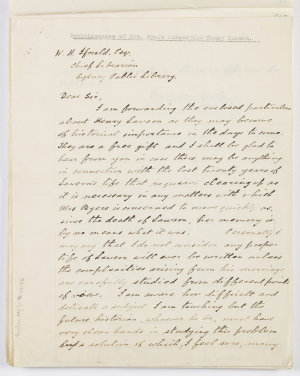 Reminiscences of Mrs. Byers concerning Henry Lawson.
W. H. Ifould, Esq.
Chief Librarian
Sydney Public Library.
Dear Sir,
I am forwarding the enclosed particulars
about Henry Lawson as they may become
of historical importance in the days to come.
They are a free gift and I shall be glad to
hear from you in case there may be anything
in connection with the last twenty years of
Lawson's life that requires clearing up as
it is necessary in any matters with which
Mrs Byers is concerned to move quickly as,
since the death of Lawson, her memory is
by no means what it was. Personally I
may say that I do not consider any proper
life of Lawson will ever be written unless
the complexities arising from his marriage
are carefully studied from different points
of view. I am aware how difficult and
delicate a subject I am touching but the
future historian, whoever he be, must have
very clean hands in studying this problem
a solution of which, I feel sure, many